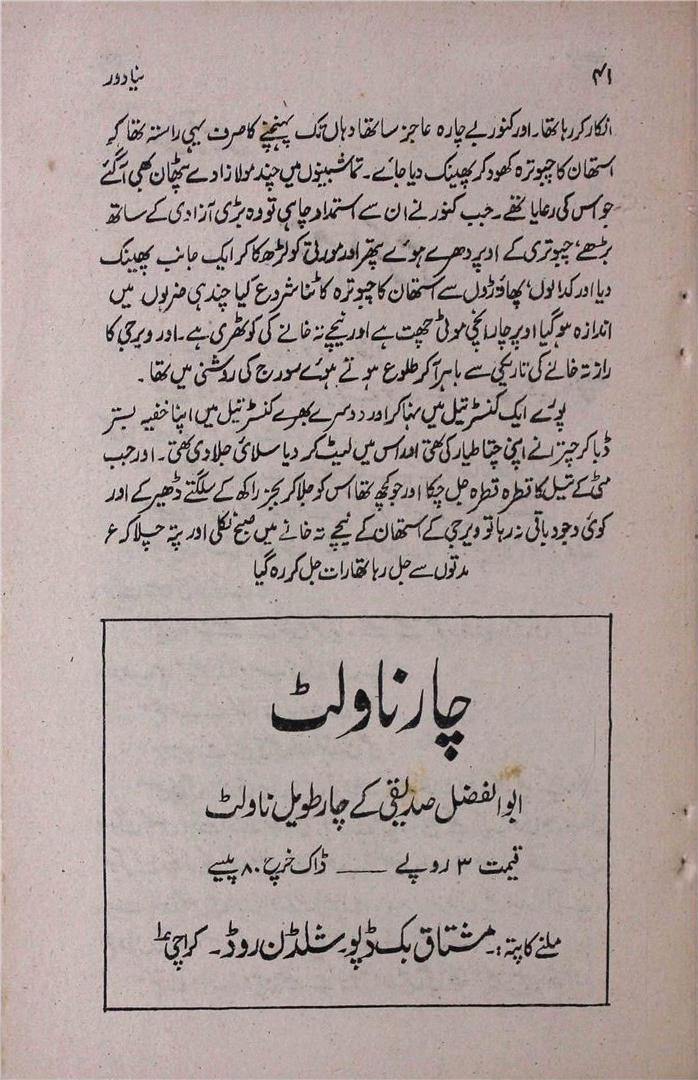 ۴۱
نیا دور
انکار کر رہا تھا۔ اور کنور بے چارہ عاجز سا تھا وہاں تک پہنچنے کا صرف یہی راستہ تھا کہ
استھان کا چبوترہ کھود کر پھینک دیا جائے۔ تماشبینوں میں چند مولا زادے پٹھان بھی آگئے
جو اس کی رعایا تھے۔ جب کنور نے ان سے استمداد چاہی تو وہ بڑی آزادی کے ساتھ
بڑھے، چبوتری کے اوپر دھرے ہوئے پتھر اور مورتی کو لڑھکا کر ایک جانب پھینک
دیا اور کدالوں، پھاؤڑوں سے استھان کا چبوترہ کاٹنا شروع کیا چند ہی ضربوں میں
اندازہ ہو گیا اوپر چار انچی موٹی چھت ہے اور نیچے تہ خانے کی کوٹھری ہے۔ اور ویرجی کا
راز تہ خانے کی تاریکی سے باہر آکر طلوع ہوتے ہوئے سورج کی روشنی میں تھا۔
پورے ایک کنستر تیل میں نہا کر اور دوسرے بھرے کنستر تیل میں اپنا خفیہ بستر
ڈبا کر چترا نے اپنی چتا طیار کی تھی اور اس میں لیٹ کر دیا سلائی جلا دی تھی۔ اور جب
مٹی کے تیل کا قطرہ قطرہ جل چکا اور جو کچھ تھا اس کو جلا کر بجز راکھ کے سلگتے ڈھیر کے اور
کوئی وجود باقی نہ رہا تو ویرجی کے استھان کے نیچے تہ خانے میں صبح نکلی اور پتہ چلا کہ ع
مدتوں سے جل رہا تھا رات جل کر رہ گیا
چار ناولٹ
ابوالفضل صدیقی کے چار طویل ناولٹ
قیمت ۳ روپے —— ڈاک خرچ ۸۰ پیسے
ملنے کا پتہ:۔ مشتاق بک ڈپو۔ شلڈن روڈ۔ کراچی ۱